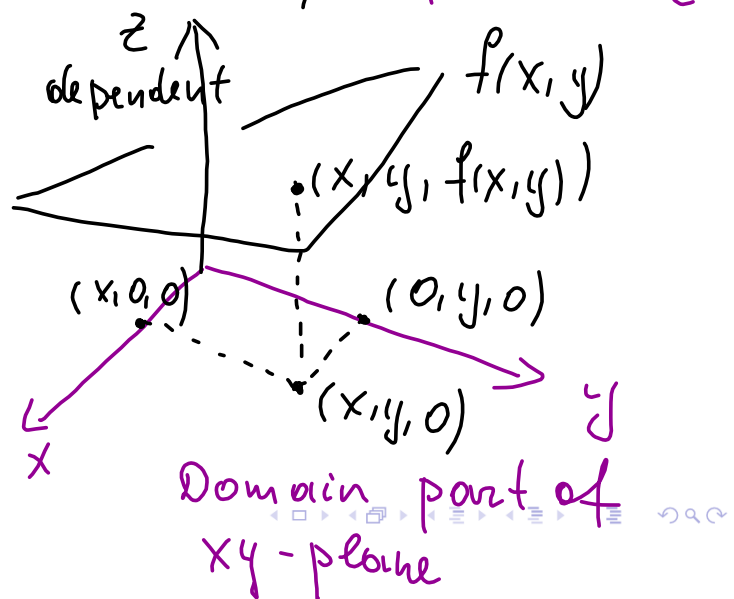 z
dependent
f(x, y)
(x, y, f(x, y))
(x, 0, 0)
(0, y, 0)
(x, y, 0)
y
x
Domain part of
xy - plane